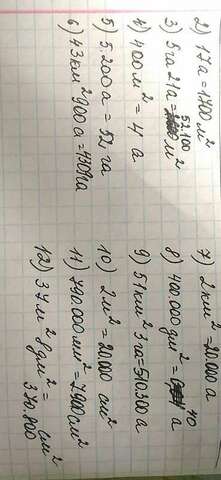 2) 17а = 1700 м²
3) 5га 21а = 52.100 м²
4) 400 м² = 4 а
5) 5.200а = 52 га
6) 43км² 900а = 4309га
7) 2км² = 20.000 а
8) 400.000 дм² = 40 а
9) 51км² 3га = 510.300 а
10) 2м² = 20.000 см²
11) 790.000 мм² = 7900 см²
12) 37м² 8дм² = см²
370.800